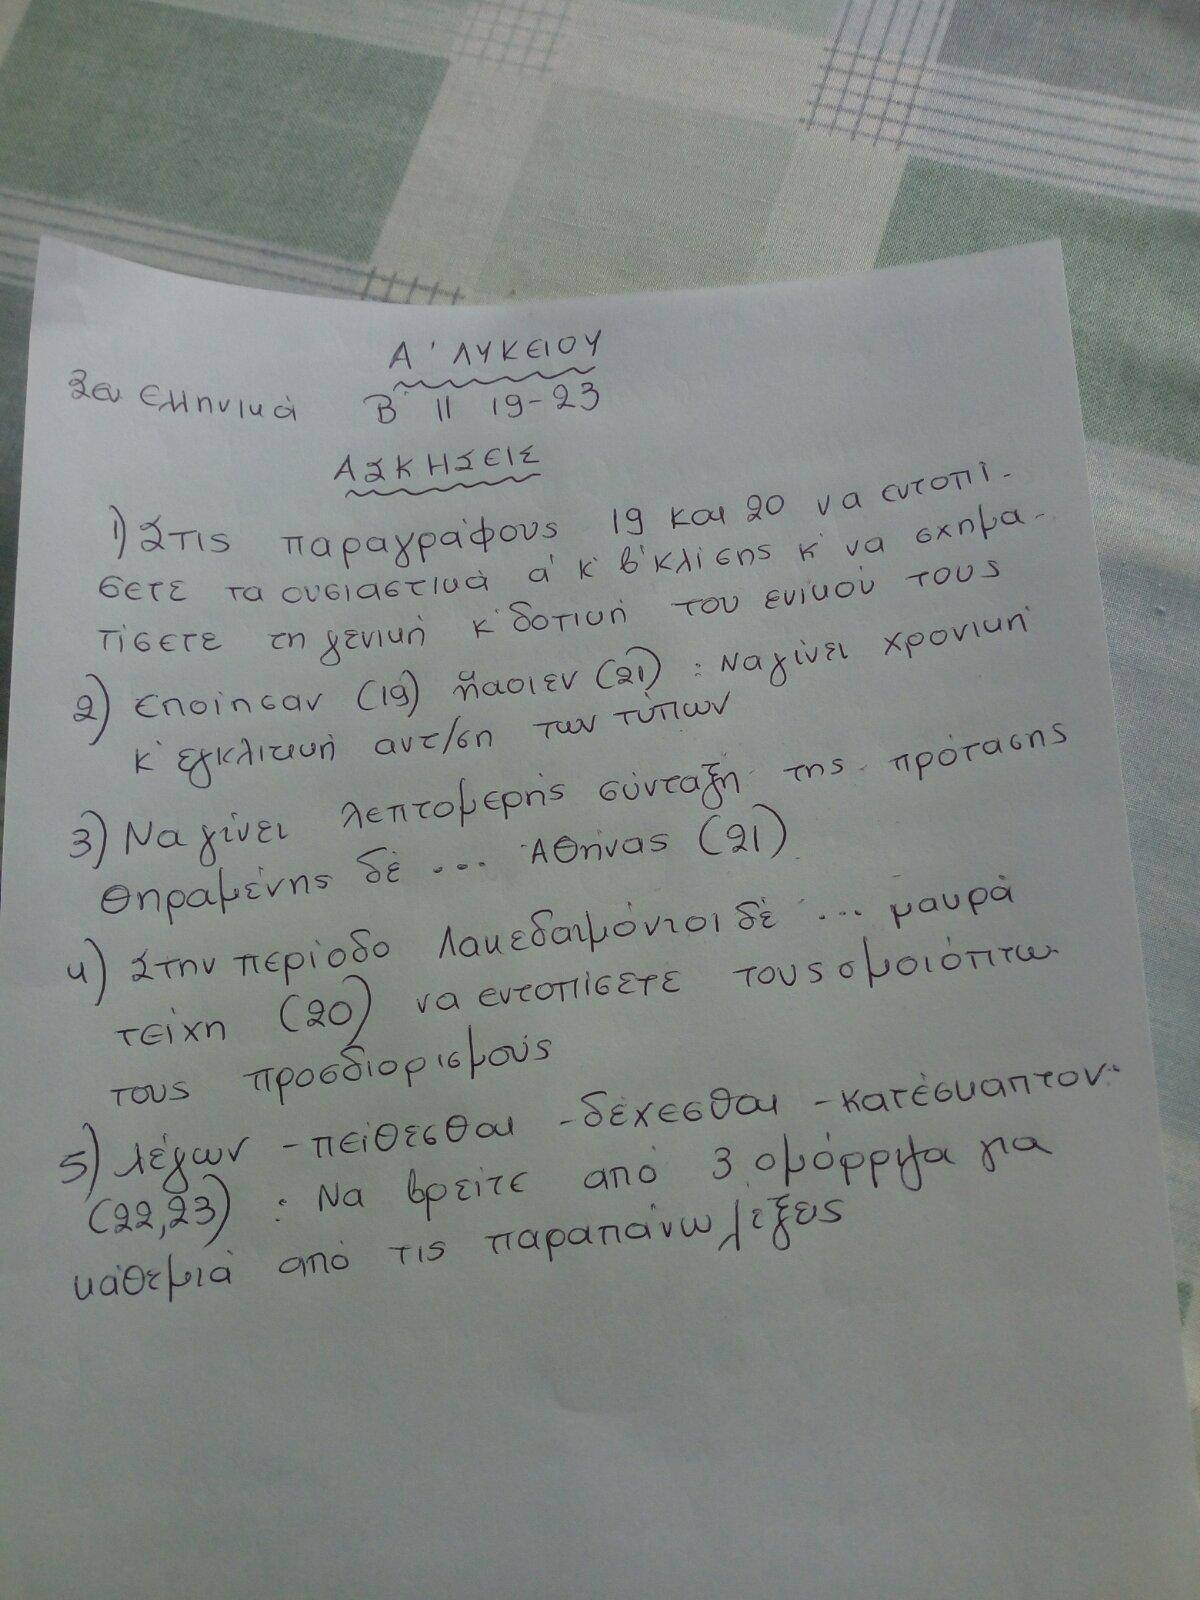 Α' ΛΥΚΕΙΟΥ
Ξεν Ελληνικά Β' II 19-23
ΑΣΚΗΣΕΙΣ
1) Στις παραγράφους 19 και 20 να εντοπί-
σετε τα ουσιαστικά α' κ' β' κλίσης κ' να σχημα-
τίσετε τη γενική κ' δοτική του ενικού τους
2) εποίησαν (19) (21) : Να γίνει χρονική
κ' εγκλιτική αντ/ση των τύπων
3) Να γίνει λεπτομερής σύνταξη της πρότασης
Θηραμένης δέ ... Αθήνας (21)
4) Στην περίοδο Λακεδαιμόνιοι δέ ... μαυρά
τείχη (20) να εντοπίσετε τους ομοιόπτω
τους προσδιορισμούς
5) λέγων - πείθεσθαι - δέχεσθαι - κατέσκαπτον
(22,23) : Να βρείτε από 3 ομόρριζα για
κάθεμιά από τις παραπάνω λέξεις